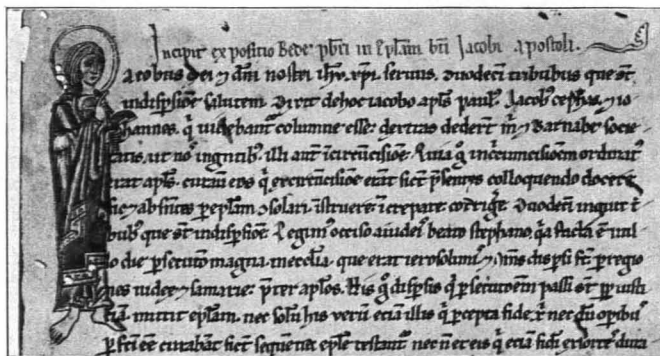 Incipit expositio Bede pbri in eplam bti Jacobi apostoli.
acobus dei ⁊ dni nostri ihu xpi seruus. duodeci tribubus que st
indispsione salutem. Dixit de hoc iacobo apls paul. Jacob cephas ⁊ io
hannes. q uidebant columne esse: dextras dedert m ⁊ barnabe socie
tatis. ut nos in gentib. illi aut i circucisione. Quia g in circumcisionem ordinat
erat apls. curauit eos q ex circucisione erant sicut psentes colloquendo docere
sic ⁊ absentes p eplam consolari. istruere. increpare. corrige. Duodeci inquit t
bub que st indispsione. Legim occiso a iudeis beato stephano. qa facta e in il
lo die psecutio magna in ecclia. que erat ierosolimis. ⁊ oms dispsi st p regio
nes iudee ⁊ samarie: pter aplos. His g dispsis q psecutoem passi st pp iusti
tia. mittit eplam. nec solu his ueru etia illis q pcepta fide xi nec du operib
pfecti ee curabat sicut sequentia eple testant nec n et eis q etia fidei exortes dura